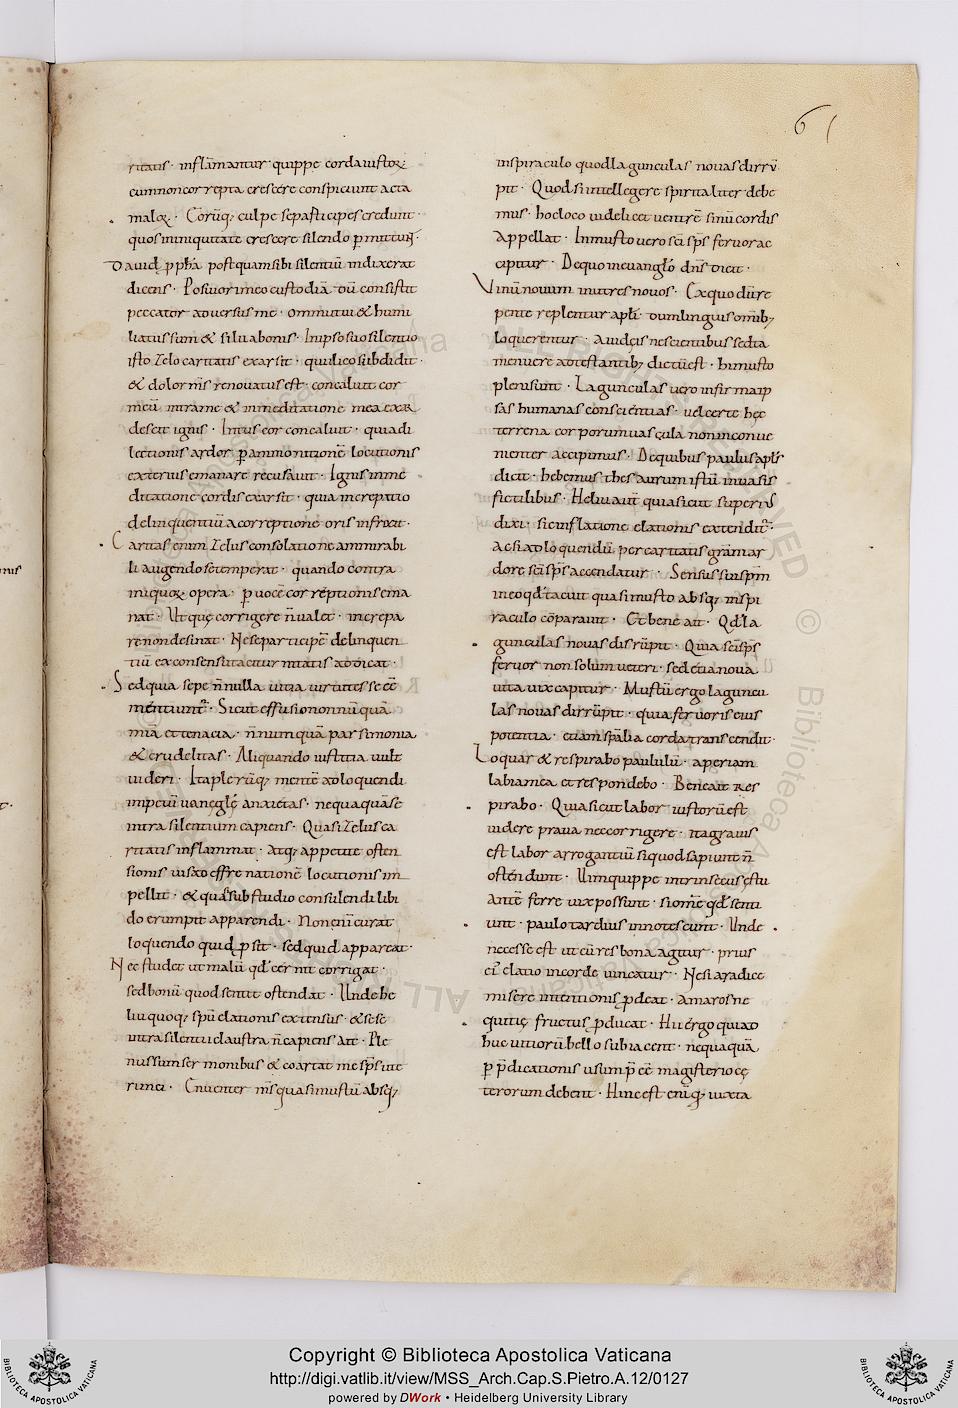 61
ritatis · inflāmantur quippe corda iustoꝝ
cum non correpta crescere conspiciunt acta
maloꝝ · Eorūq; culpe se participes credunt ·
quos in iniquitate crescere silendo ꝑmittunt ·
David ꝓphā postquam sibi silentiū indixerat
dicens · Posui ori meo custodiā dū consistit
peccator adversus me · ommutui & humi
liatus sum & silui a bonis · In ipso suo silentio
isto zelo caritatis exarsit · qui ilico subdidit ·
& dolor mīs renovatus est · concaluit cor
meū intra me & in meditatione mea exar
descit ignis · Intus cor concaluit · quia di
lectionis ardor ꝑ ammonitionē locutionis
exterius emanare recusavit · Ignis in me
ditatione cordis exarsit · quia increpatio
delinquentiū a correptione oris infrixit ·
Caritas enim zelus consolatione ammirabi
li augendo se temperat · quando contra
iniquoꝝ opera · ꝑ vocē correptionis ema
nat · Ut quę corrigere n̄ valet · increpa
re non desinat · Ne se participē delinquen
tiū ex consensu taciturnitatis addicat ·
Sed quia sepe n̄nulla vitia virtutes se eē
mentiunt̄ · Sicut effusio nonnūquā
miā et tenacia · n̄numquā parsimonia
& crudelitas · Aliquando iustitia vult
videri · Ita plerūq; mentē ad loquendi
impetū vanę glę anxietas · nequaquā se
intra silentium capiens · Quasi zelus ca
ritatis inflammat · Atq; appetitę osten
sionis vis ad effrenationē locutionis im
pellit · & quasi sub studio consulendi libi
do erumpit apparendi · Non enī curat
loquendo quid ꝓsit · sed quid appareat ·
Nec studet ut malū qđ cernit corrigat ·
sed bonū quod sentit ostendat · Unde he
liu quoq; spū elationis extensus · & se se
intra silentii claustra n̄ capiens ait · Ple
nus sum sermonibus & coartat me sps̄ ute
ri mei · En venter mīs quasi mustū absq;
in spiraculo quod lagunculas novas dirrū
pit · Quod si intellegere spiritaliter debe
mus · hoc loco videlicet ventrē sinū cordis
Appellat · In musto vero sci sps̄ fervor ac
cipitur · De quo in evangłó dn̄s dicit ·
Vinū novum in utres novos · Ex quo dū re
pente replentur apłi · dum linguis omīb;
loquerentur · A iudęis nescientibus sed ta
men vere adtestantib; dictū est · hi musto
pleni sunt · Lagunculas vero infirma ip
sas humanas conscientias · vel certe hęc
terrena corporum vascula non inconve
nienter accipimus · De quibus paulus apłs
dicit · hebemus thesaurum istū in vasis
fictilibus · Heliu aut̄ quia sicut superius
dixi · sic inflatione elationis extendit̄ ·
Ac si ad loquendū per caritatis grām ar
dore sci sps̄ accendatur · Sensus sui spm̄
in eo qđ tacuit quasi musto absq; inspi
raculo cōparavit · Et bene ait · Qđ la
gunculas novas disrūpit · Quia sci sps̄
fervor non solum veteri · sed etiā nova
vita vix capitur · Mustū ergo laguncu
las novas dirrūpit · quia fervoris eius
potentia · etiam spālia corda transcendit ·
Loquar & respirabo paululū · aperiam
labia mea et respondebo · Bene ait res
pirabo · Quia sicut labor iustorū est
videre prava nec corrigere · ita gravis
est labor arrogantiū si quod sapiunt n̄
ostendunt · Vim quippe intrinsecus ęstu
Antē ferre vix possunt · si omē qđ senti
unt · paulo tardius innotescunt · Unde
necesse est ut cū res bona agitur · prius
ei' elatio in corde vincatur · Ne si a radice
miserę intentionis ꝓdeat · amaros ne
quitię fructus ꝓducat · Hii ergo qui ad
huc vitiorū bello subiacent · nequaquā
ꝑ p̄dicationis usum p̄eē magisterio cę
terorum debent · Hinc est enī q; iuxta
Copyright © Biblioteca Apostolica Vaticana
http://digi.vatlib.it/view/MSS_Arch.Cap.S.Pietro.A.12/0127
powered by DWork • Heidelberg University Library